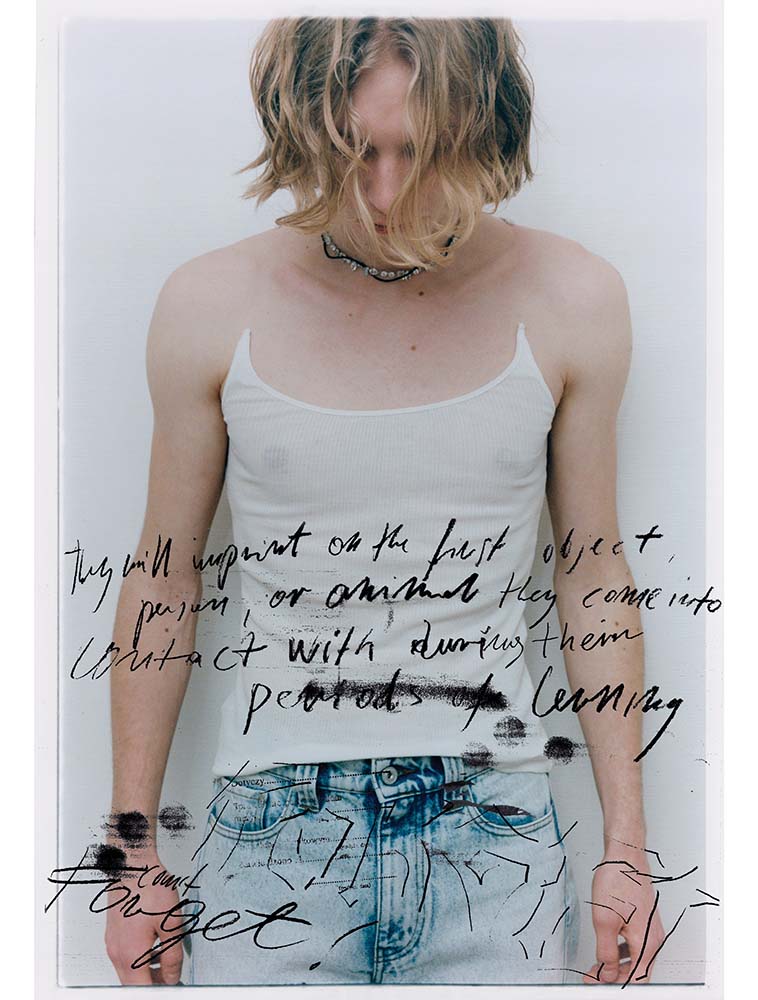 They will imprint on the first object,
person, or animal they come into
contact with during their
periods of lerning
Dotyczy
can't
Forget